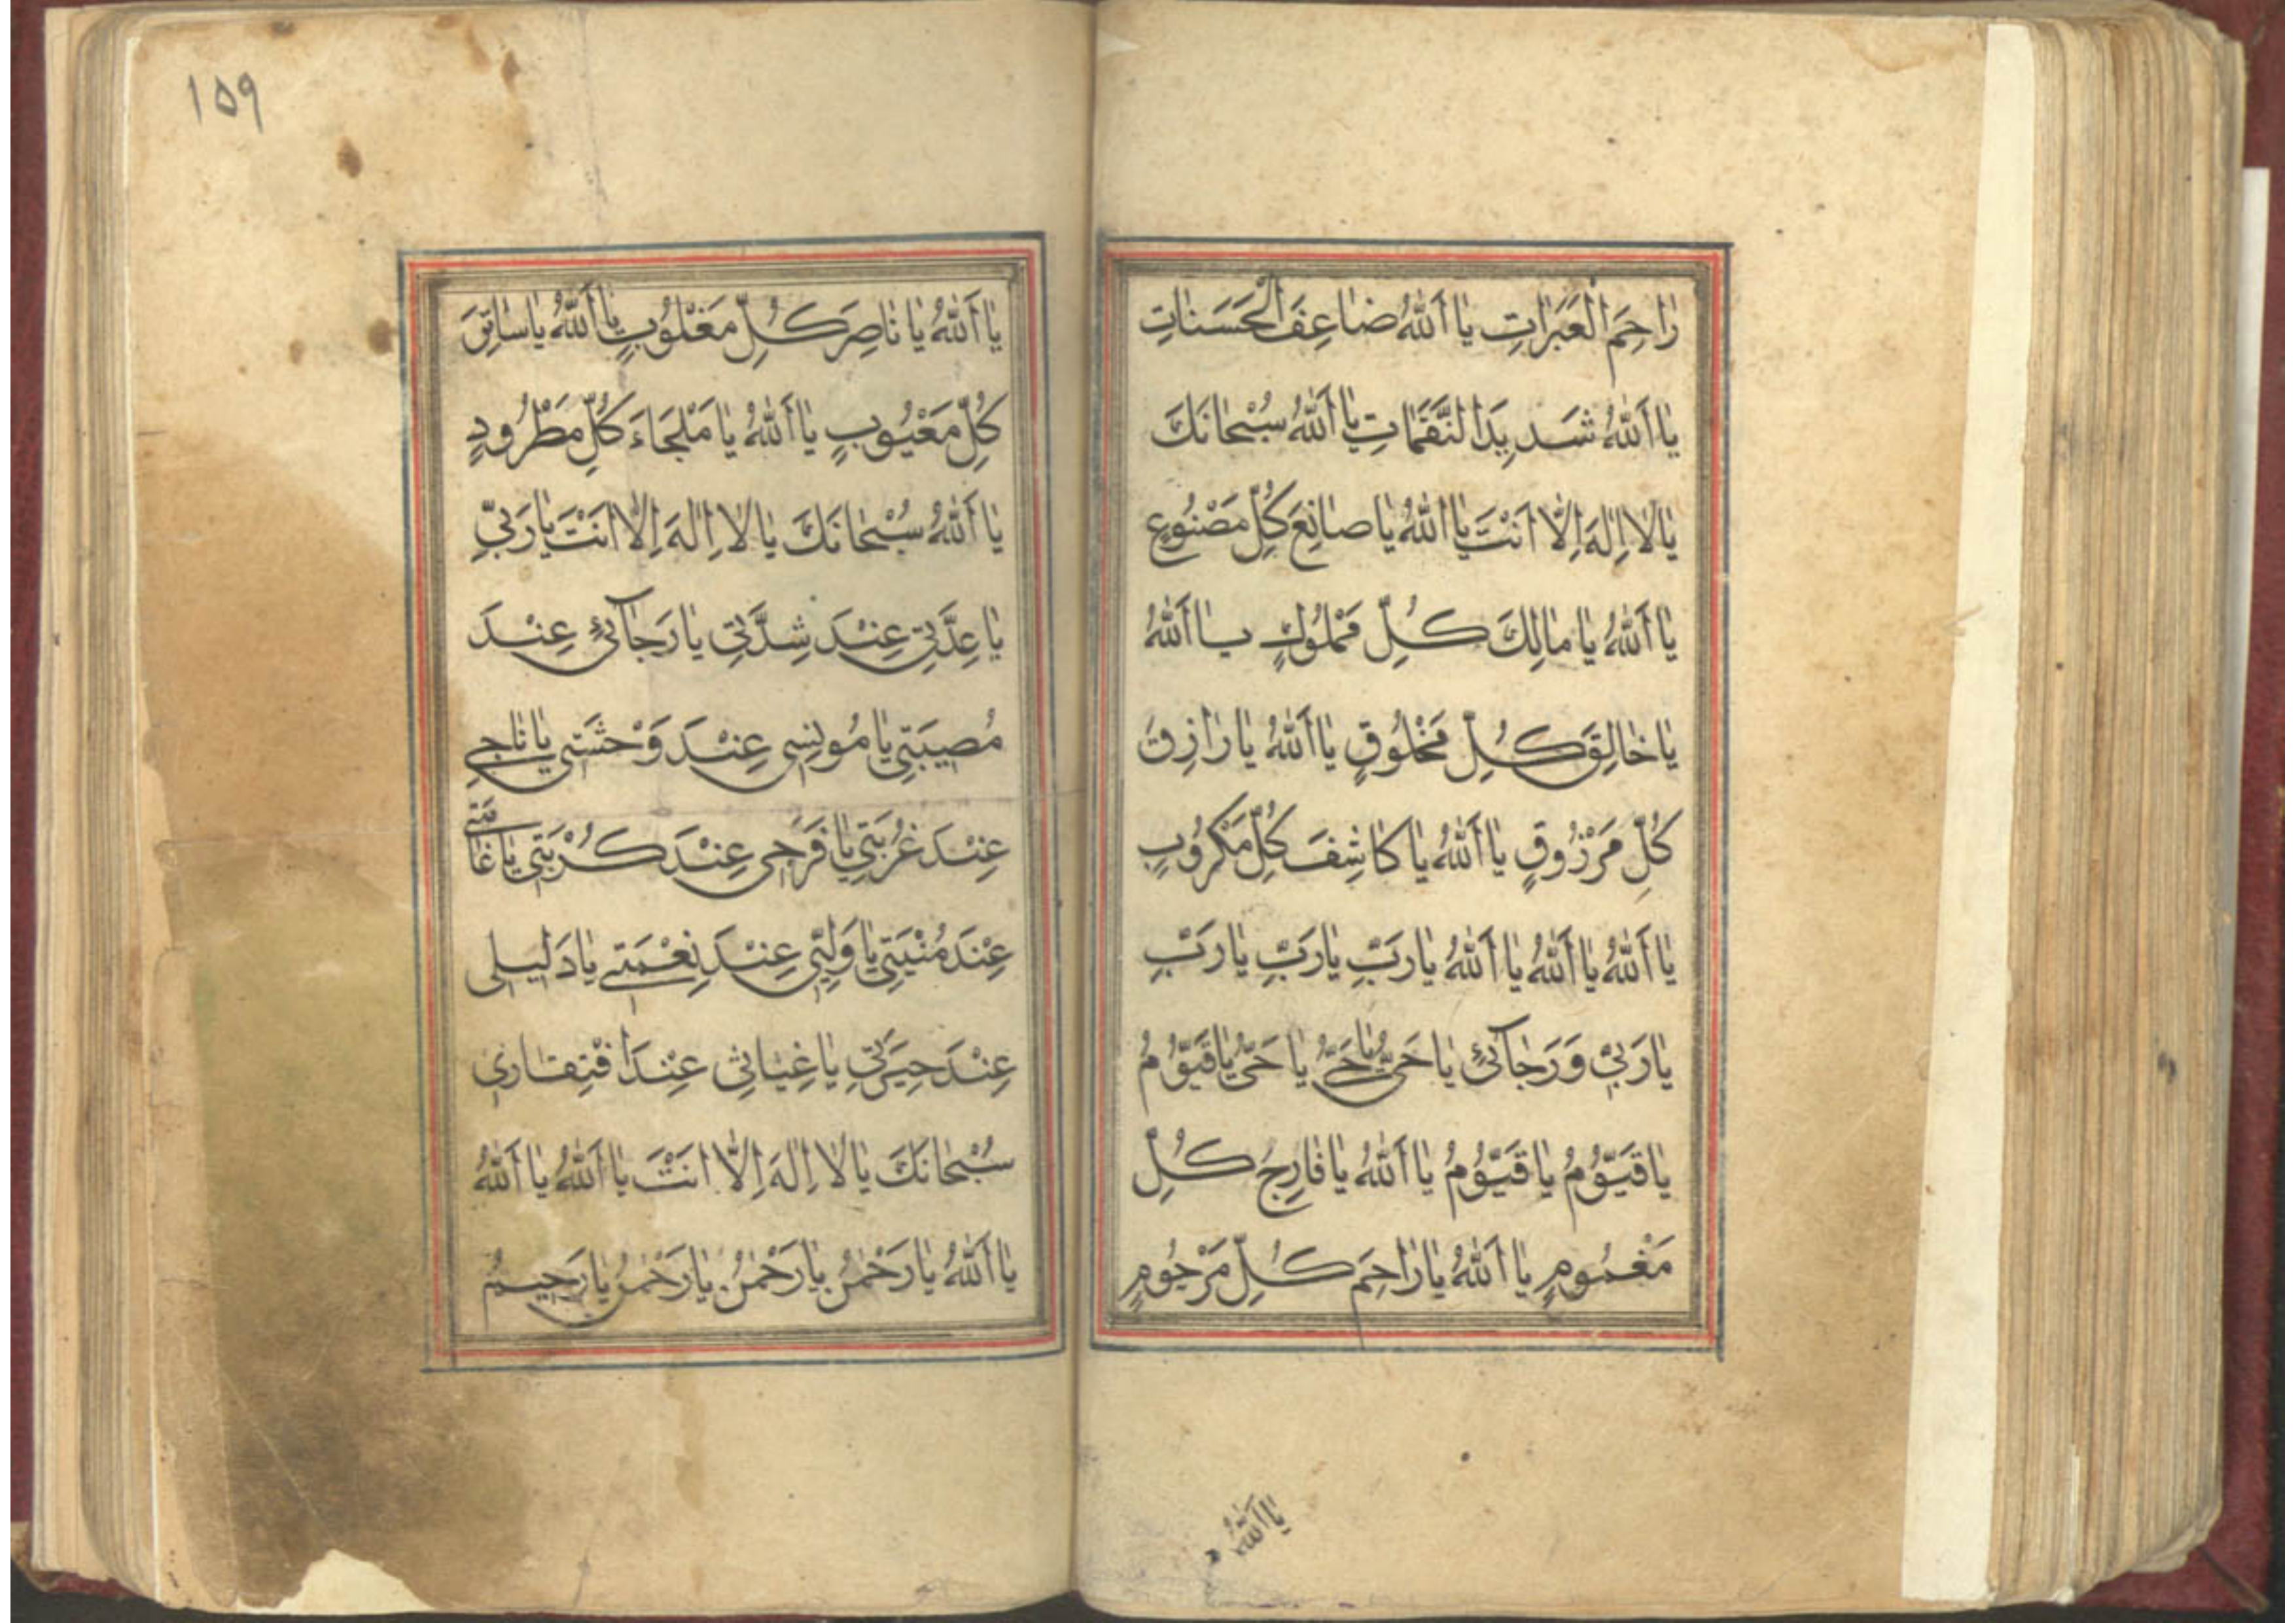 رٰاحِمَ الْعَبَرٰاتِ يٰا اَللّٰهُ ضٰاعِفَ الْحَسَنٰاتِ
يٰا اَللّٰهُ شَدِيدَ النَّقَمٰاتِ يٰا اَللّٰهُ سُبْحٰانَكَ
يٰا لٰا اِلٰهَ اِلّٰا اَنْتَ يٰا اَللّٰهُ يٰا صٰانِعَ كُلِّ مَصْنُوعٍ
يٰا اَللّٰهُ يٰا مٰالِكَ كُلِّ مَمْلُوكٍ يٰا اَللّٰهُ
يٰا خٰالِقَ كُلِّ مَخْلُوقٍ يٰا اَللّٰهُ يٰا رٰازِقَ
كُلِّ مَرْزُوقٍ يٰا اَللّٰهُ يٰا كٰاشِفَ كُلِّ مَكْرُوبٍ
يٰا اَللّٰهُ يٰا اَللّٰهُ يٰا اَللّٰهُ يٰا رَبِّ يٰا رَبِّ يٰا رَبِّ
يٰا رَبِّي وَرَجٰآئِي يٰا حَيُّ يٰا حَيُّ يٰا حَيُّ يٰا قَيُّومُ
يٰا قَيُّومُ يٰا قَيُّومُ يٰا اَللّٰهُ يٰا فٰارِجَ كُلِّ
مَغْمُومٍ يٰا اَللّٰهُ يٰا رٰاحِمَ كُلِّ مَرْحُومٍ
يٰا اَللّٰهُ
١٥٩
يٰا اَللّٰهُ يٰا نٰاصِرَ كُلِّ مَغْلُوبٍ يٰا اَللّٰهُ يٰا
كُلِّ مَعْيُوبٍ يٰا اَللّٰهُ يٰا مَلْجَاءَ كُلِّ مَطْرُودٍ
يٰا اَللّٰهُ سُبْحٰانَكَ يٰا لٰا اِلٰهَ اِلّٰا اَنْتَ يٰا رَبِّي
يٰا عِدَّتِي عِنْدَ شِدَّتِي يٰا رَجٰآئِي عِنْدَ
مُصِيبَتِي يٰا مُونِسِي عِنْدَ وَحْشَتِي يٰا نٰاجِي
عِنْدَ غُرْبَتِي يٰا فَرَجِي عِنْدَ كُرْبَتِي يٰا غٰايَتِي
عِنْدَ مُنْيَتِي يٰا وَلِيِّي عِنْدَ نِعْمَتِي يٰا دَلِيلِي
عِنْدَ حِيرَتِي يٰا غِيٰاثِي عِنْدَ افْتِقٰارِي
سُبْحٰانَكَ يٰا لٰا اِلٰهَ اِلّٰا اَنْتَ يٰا اَللّٰهُ يٰا اَللّٰهُ
يٰا اَللّٰهُ يٰا رَحْمٰنُ يٰا رَحْمٰنُ يٰا رَحْمٰنُ يٰا رَحِيمُ